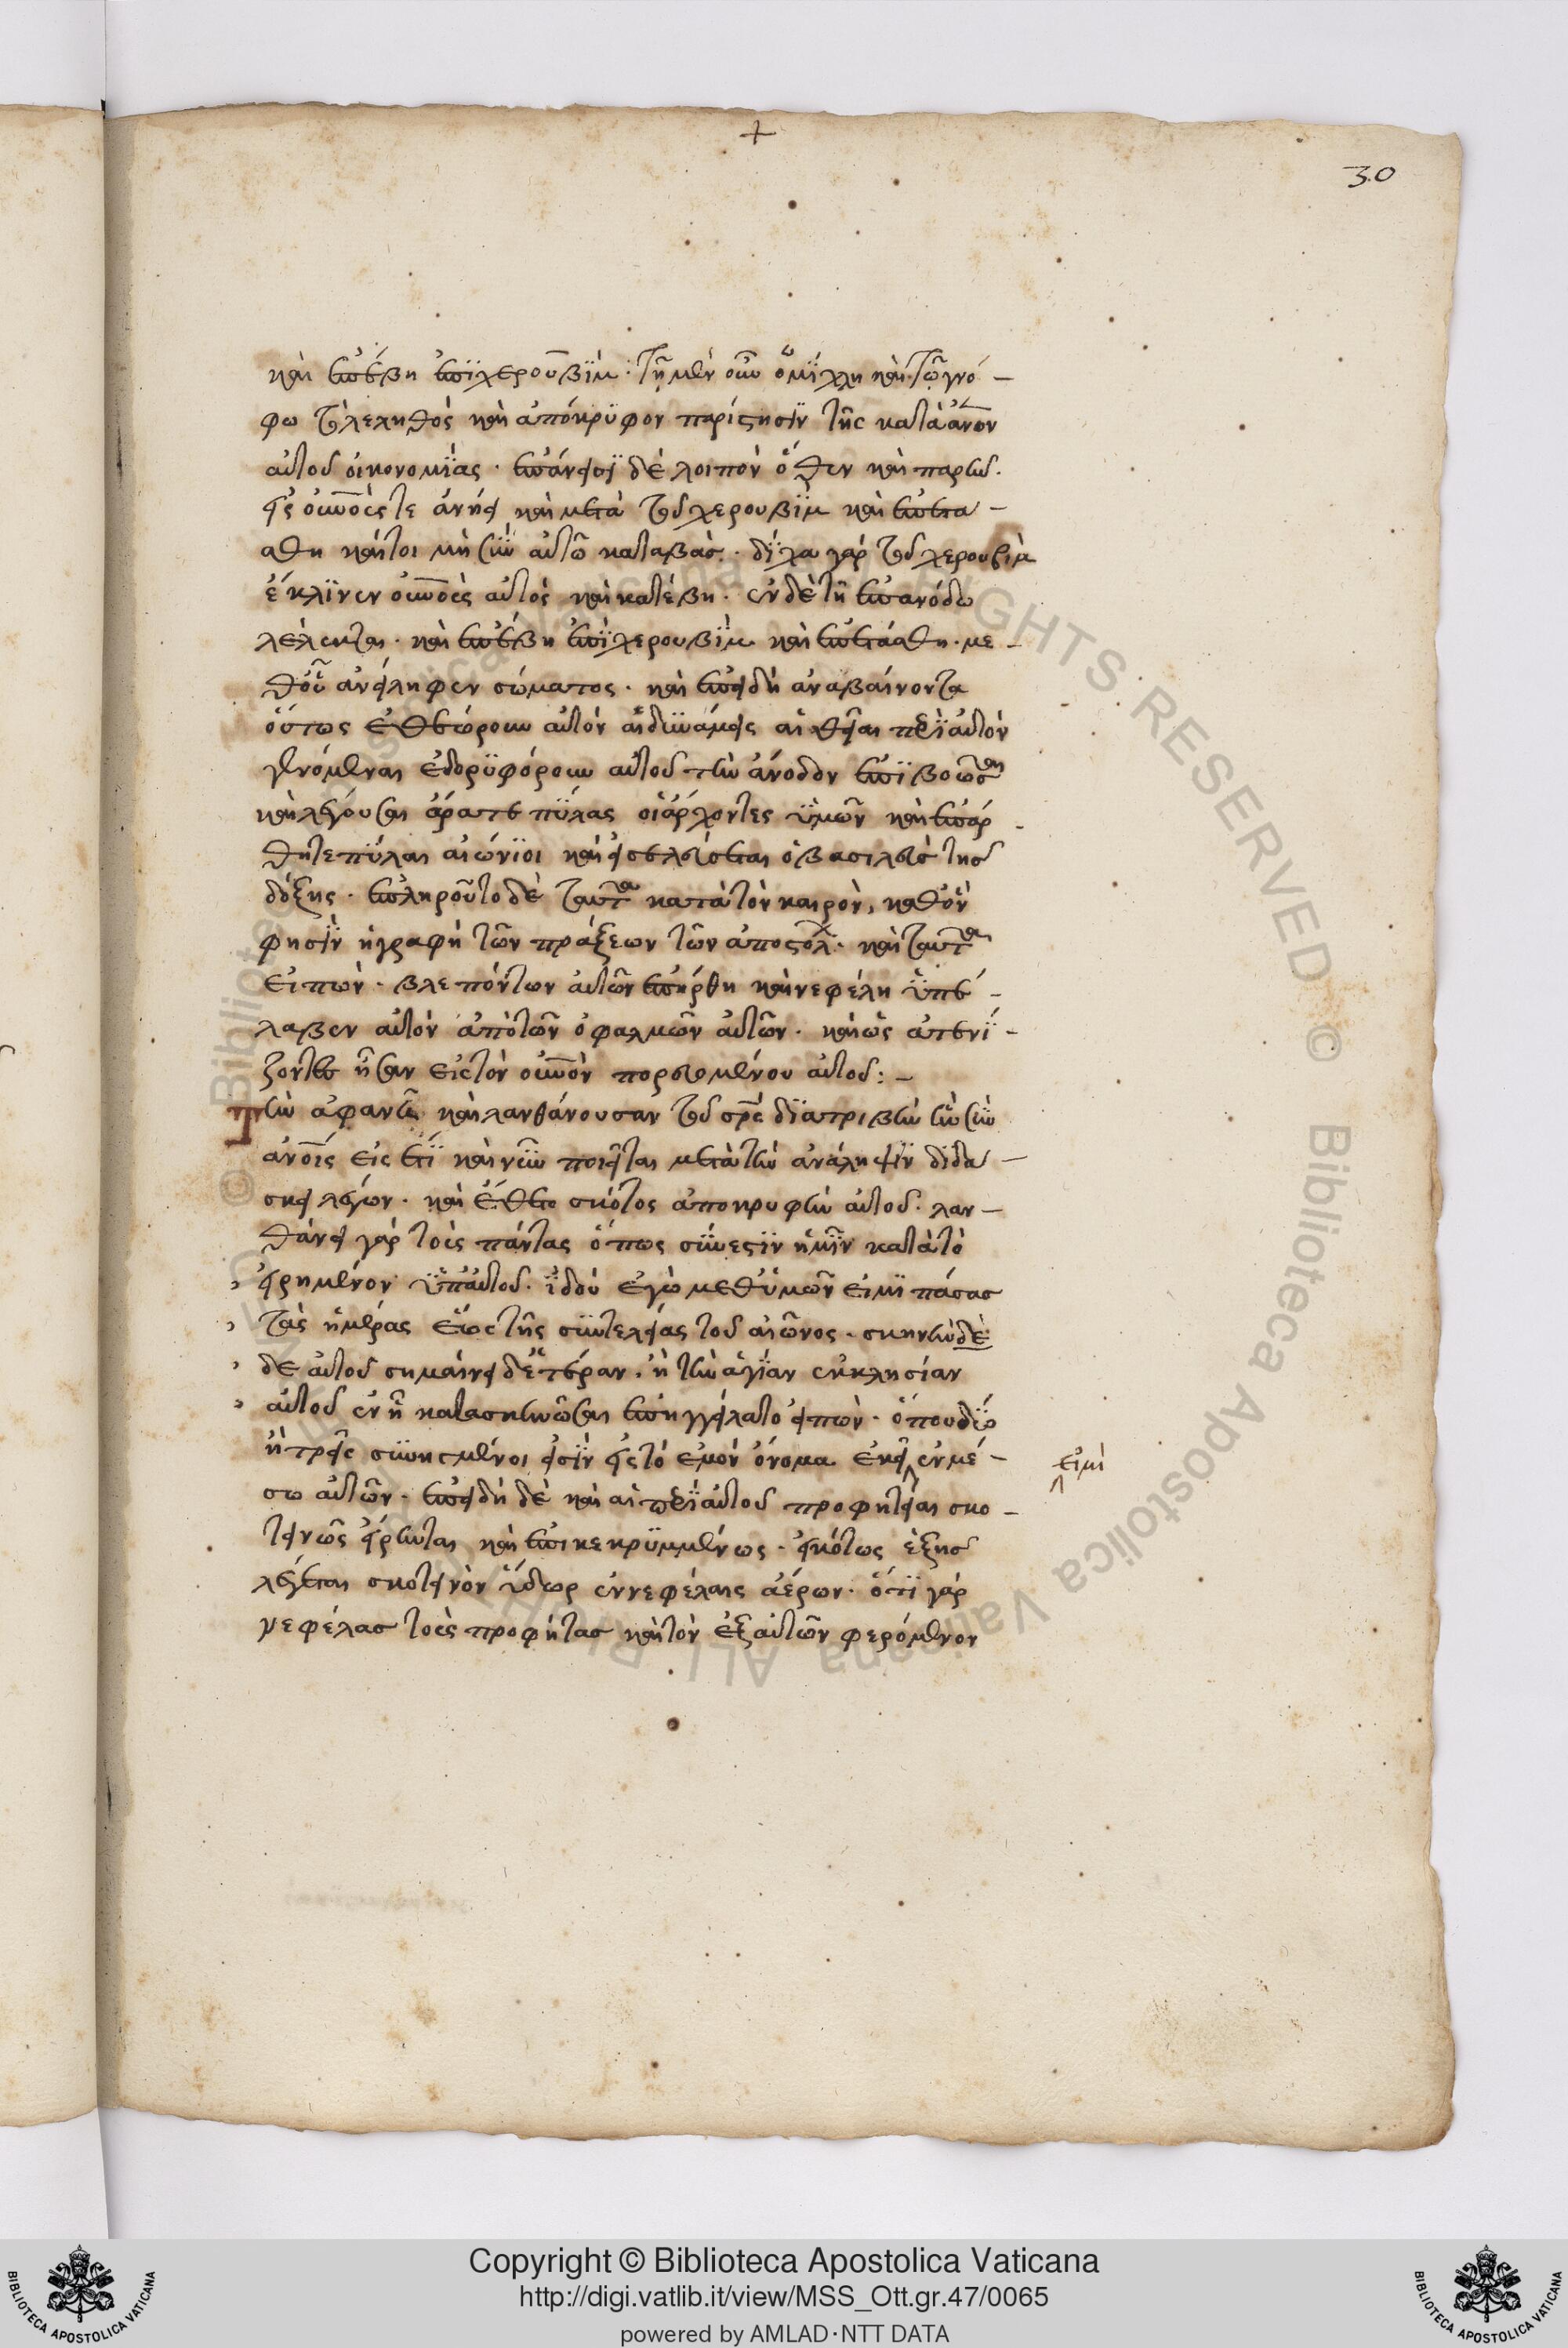 +
30
καὶ ἐπέβη ἐπὶ χερουβὶμ· τῆ μὲν οὖν ὁμίχλη καὶ τῶ γνό-
φω τὸ λεληθὸς καὶ ἀπόκρυφον παρίστησιν τῆς κατὰ ἄνον
αὐτοῦ οἰκονομίας· ἐπάνεισι δὲ λοιπὸν ὅθεν καὶ παρῆν·
εἰς οὐνοὺς τε ἀνήει καὶ μετὰ τοῦ χερουβὶμ καὶ ἐπετά-
σθη καίτοι μὴ σὺν αὐτῶ καταβάς· δίχα γὰρ τοῦ χερουβὶμ
ἔκλινεν οὐνοὺς αὐτὸς καὶ κατέβη· ἐν δὲ τῆ ἐπανόδω
λέλεκται· καὶ ἐπέβη ἐπὶ χερουβὶμ καὶ ἐπετάσθη· με-
θ' οὗ ἀνείληφεν σώματος· καὶ ἐπειδὴ ἀναβαίνοντα
οὕτως ἐθεώρουν αὐτὸν αἱ δυνάμεις αἱ θεῖαι περὶ αὐτὸν
γενόμεναι ἐδορυφόρουν αὐτοῦ τὴν ἄνοδον ἐπιβοῶσαι
καὶ λέγουσαι ἄρατε πύλας οἱ ἄρχοντες ὑμῶν καὶ ἐπάρ-
θητε πύλαι αἰώνιοι καὶ εἰσελεύσεται ὁ βασιλεὺς τῆσ
δόξης· ἐπληροῦτο δὲ ταῦτα κατὰ τὸν καιρὸν, καθ' ὃν
φησὶν ἡ γραφὴ τῶν πράξεων τῶν ἀποστόλ· καὶ ταῦτα
εἰπὼν· βλεπόντων αὐτῶν ἐπήρθη καὶ νεφέλη ὑπέ-
λαβεν αὐτὸν ἀπὸ τῶν ὀφαλμῶν αὐτῶν· καὶ ὡς ἀτενί-
ζοντες ἦσαν εἰς τὸν οὐνὸν πορευομένου αὐτοῦ:-
Τὴν ἀφανῆ καὶ λανθάνουσαν τοῦ σρς διατριβὴν ἣν σὺν
ἀνοις εἰς ἔτι καὶ νῦν ποιεῖται μετὰ τὴν ἀνάληψιν διδά-
σκει λέγων· καὶ ἔθετο σκότος ἀποκρυφὴν αὐτοῦ· λαν-
θάνει γὰρ τοὺς πάντας ὅπως σύνεστιν ἡμῖν κατὰ τὸ
εἰρημένον ὑπ' αὐτοῦ· ἰδοὺ ἐγὼ μεθ' ὑμῶν εἰμι πάσασ
τὰς ἡμέρας ἕως τῆς συντελείας τοῦ αἰῶνος· σκηνὴν δὲ
δε αὐτοῦ σημαίνει δ' ἑτέραν· ἢ τὴν ἁγίαν ἐκκλησίαν
αὐτοῦ ἐν ἧ κατασκηνῶσαι ἐπηγγείλατο εἰπὼν· ὅπου δύο
ἢ τρεῖς συνηγμένοι εἰσὶν εἰς τὸ ἐμὸν ὄνομα ἐκεῖ ἐν μέ-
εἰμὶ
σω αὐτῶν· ἐπειδὴ δὲ καὶ αἱ περὶ αὐτοῦ προφητεῖαι σκο-
τεινῶς εἴρηνται καὶ ἐπικεκρυμμένως· εἰκότως ἑξῆσ
λέγεται σκοτεινὸν ὕδωρ ἐν νεφέλαις ἀέρων· ὅτι γὰρ
νεφέλασ τοὺς προφήτασ καὶ τὸν ἐξ αὐτῶν φερόμενον
Copyright © Biblioteca Apostolica Vaticana
http://digi.vatlib.it/view/MSS_Ott.gr.47/0065
powered by AMLAD·NTT DATA